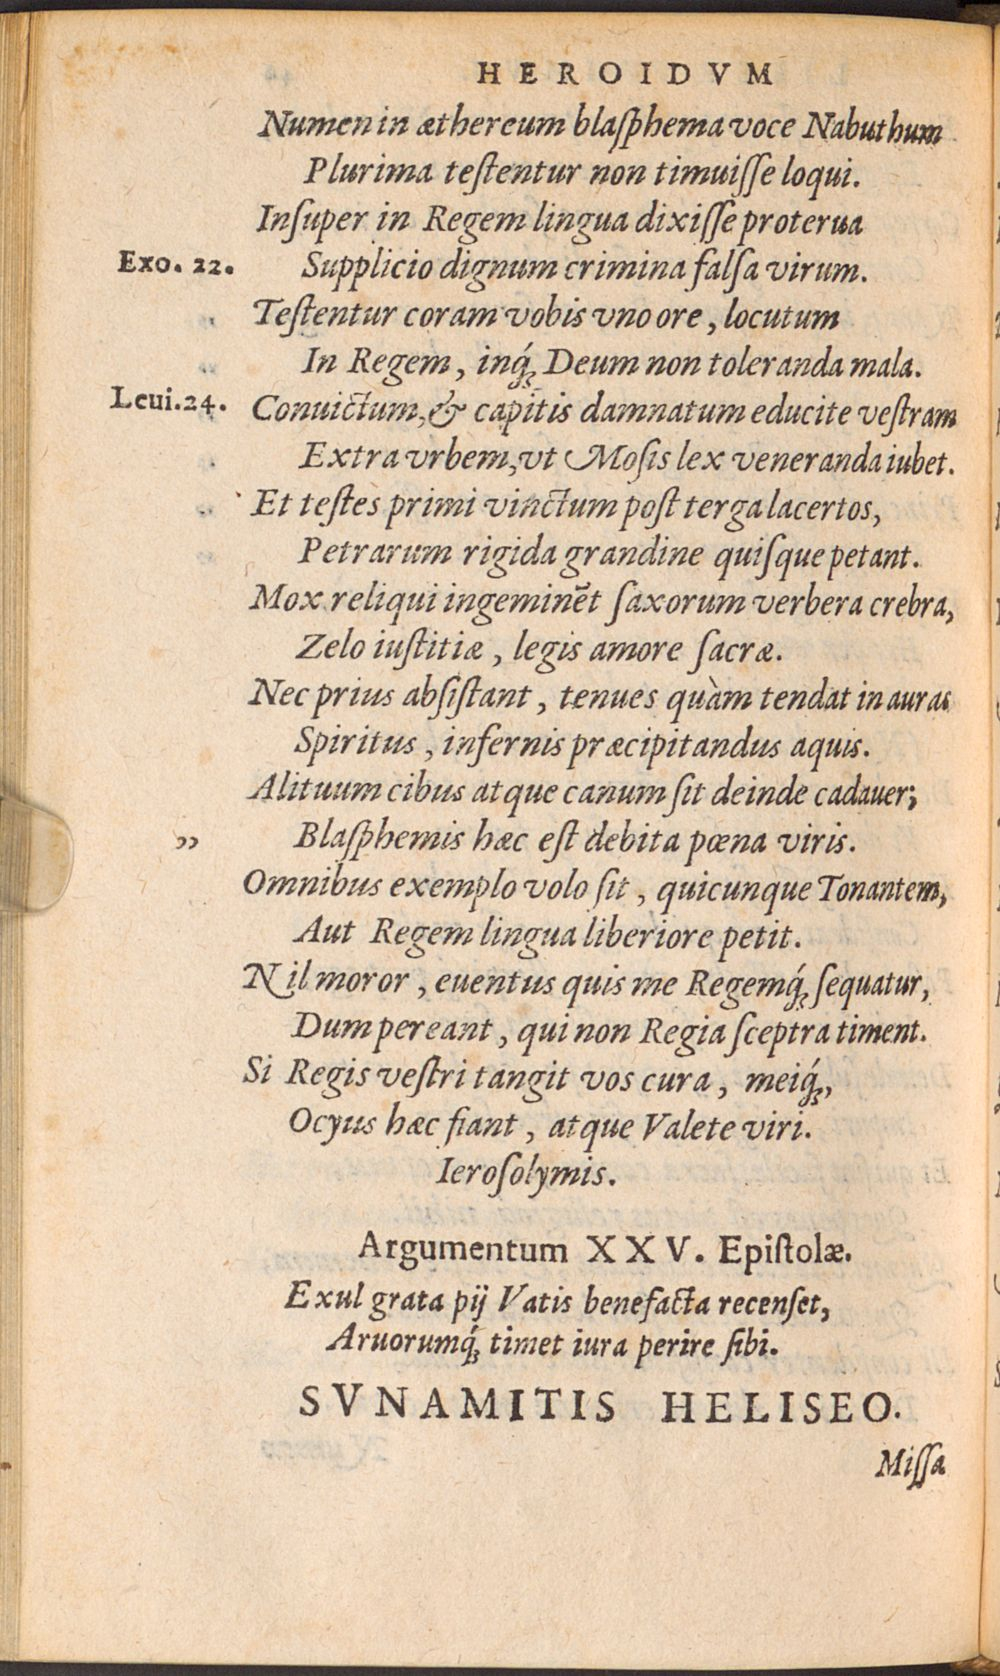 HEROIDVM
Numen in æthereum blaſphema voce Nabuthum
Plurima teſtentur non timuiſſe loqui.
Inſuper in Regem lingua dixiſſe proterua
Exo. 22. Supplicio dignum crimina falſa virum.
Teſtentur coram vobis vno ore, locutum
In Regem, inq́ꝫ Deum non toleranda mala.
Leui.24. Conuictum, & capitis damnatum educite veſtram
Extra vrbem, vt Moſis lex veneranda iubet.
Et teſtes primi vinctum poſt terga lacertos,
Petrarum rigida grandine quiſque petant.
Mox reliqui ingeminẽt ſaxorum verbera crebra,
Zelo iuſtitiæ, legis amore ſacræ.
Nec prius abſiſtant, tenues quàm tendat in auras
Spiritus, infernis præcipitandus aquis.
Alituum cibus atque canum ſit deinde cadauer;
” Blaſphemis hæc eſt debita pœna viris.
Omnibus exemplo volo ſit, quicunque Tonantem,
Aut Regem lingua liberiore petit.
Nil moror, euentus quis me Regemq́ꝫ ſequatur,
Dum pereant, qui non Regia ſceptra timent.
Si Regis veſtri tangit vos cura, meiq́ꝫ,
Ocyus hæc fiant, atque Valete viri.
Ieroſolymis.
Argumentum XXV. Epiſtolæ.
Exul grata pij Vatis benefacta recenſet,
Aruorumq́ꝫ timet iura perire ſibi.
SVNAMITIS HELISEO.
Miſſa